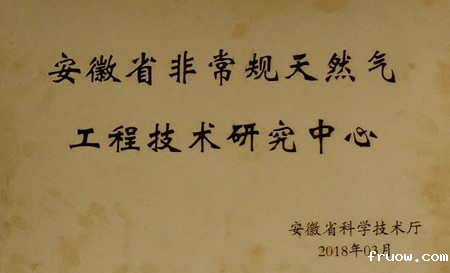 安徽省非常规天然气
工程技术研究中心
安徽省科学技术厅
2018年03月
fruow.com